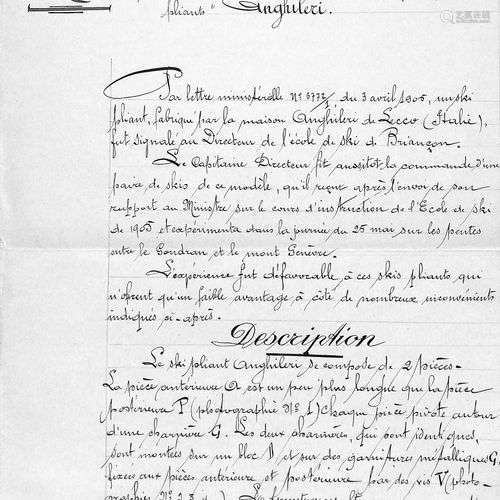 pliants" Anghileri.
Par lettre ministérielle N° 6772/1 du 3 avril 1905, un ski
pliant, fabriqué par la maison Anghileri de Lecco (Italie),
fut signalé au Directeur de l'école de ski de Briançon.
Le Capitaine Directeur fit aussitôt la commande d'une
paire de skis de ce modèle, qu'il reçut après l'envoi de son
rapport au Ministre sur le cours d'instruction de l'Ecole de ski
de 1905 et expérimenta dans la journée du 25 mai sur les pentes
entre le Gondran et le mont Genèvre.
L'expérience fut défavorable à ces skis pliants qui
n'offrent qu'un faible avantage à côté de nombreux inconvénients
indiqués ci-après.
Description
Le ski pliant Anghileri se compose de 2 pièces.
La pièce antérieure A est un peu plus longue que la pièce
postérieure P (photographie N° 1) chaque pièce pivote autour
d'une charnière G. Les deux charnières, qui sont identiques,
sont montées sur un bloc D et sur des garnitures métalliques G,
fixées aux pièces antérieure et postérieure par des vis V (photo-
graphies N° 2, 3